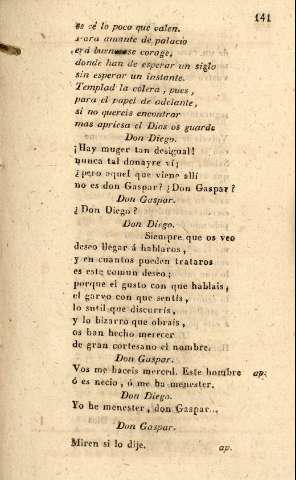 141
se sé lo poco que valen.
Para amante de palacio
será bueno ese corage,
donde han de esperar un siglo
sin esperar un instante.
Templad la cólera, pues,
para el papel de adelante,
si no quereis encontrar
mas apriesa el Dios os guarde
Don Diego.
¡Hay muger tan desigual!
nunca tal donayre ví;
¿pero aquel que viene allí
no es don Gaspar? ¿Don Gaspar?
Don Gaspar.
¿Don Diego?
Don Diego.
Siempre que os veo
deseo llegar á hablaros,
y en cuantos pueden trataros
es este comun deseo;
porque el gusto con que hablais,
el garvo con que sentís,
lo sutil que discurrís,
y lo bizarro que obrais,
os han hecho merecer
de gran cortesano el nombre.
Don Gaspar.
Vos me haceis merced. Este hombre ap.
ó es necio, ó me ha menester.
Don Diego.
Yo he menester, don Gaspar...
Don Gaspar.
Miren si lo dije. ap.